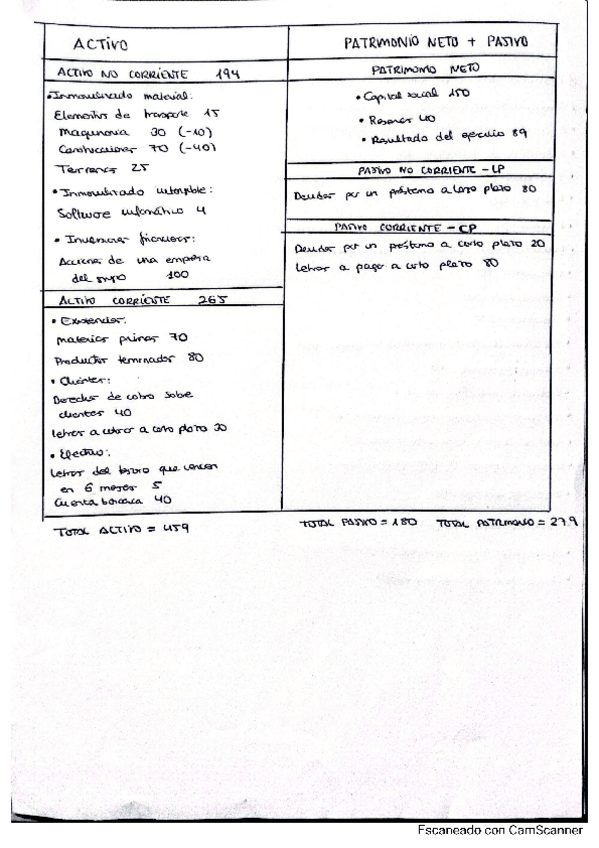 ACTIVO
ACTIVO NO CORRIENTE 194
• Inmovilizado material:
Elementos de transporte 15
Maquinaria 30 (-10)
Construcciones 70 (-40)
Terrenos 25
• Inmovilizado intangible:
Software informático 4
• Inversiones financieras:
Acciones de una empresa
del grupo 100
ACTIVO CORRIENTE 265
• Existencias:
Materias primas 70
Productos terminados 80
• Clientes:
Derechos de cobro sobre
clientes 40
letras a cobrar a corto plazo 30
• Efectivo:
Letras del tesoro que vencen
en 6 meses 5
Cuenta bancaria 40
TOTAL ACTIVO = 459
PATRIMONIO NETO + PASIVO
PATRIMONIO NETO
• Capital social 150
• Reservas 40
• Resultado del ejercicio 89
PASIVO NO CORRIENTE - LP
Deudas por un préstamo a largo plazo 80
PASIVO CORRIENTE - CP
Deudas por un préstamo a corto plazo 20
Letras a pagar a corto plazo 80
TOTAL PASIVO = 180 TOTAL PATRIMONIO = 279
Escaneado con CamScanner